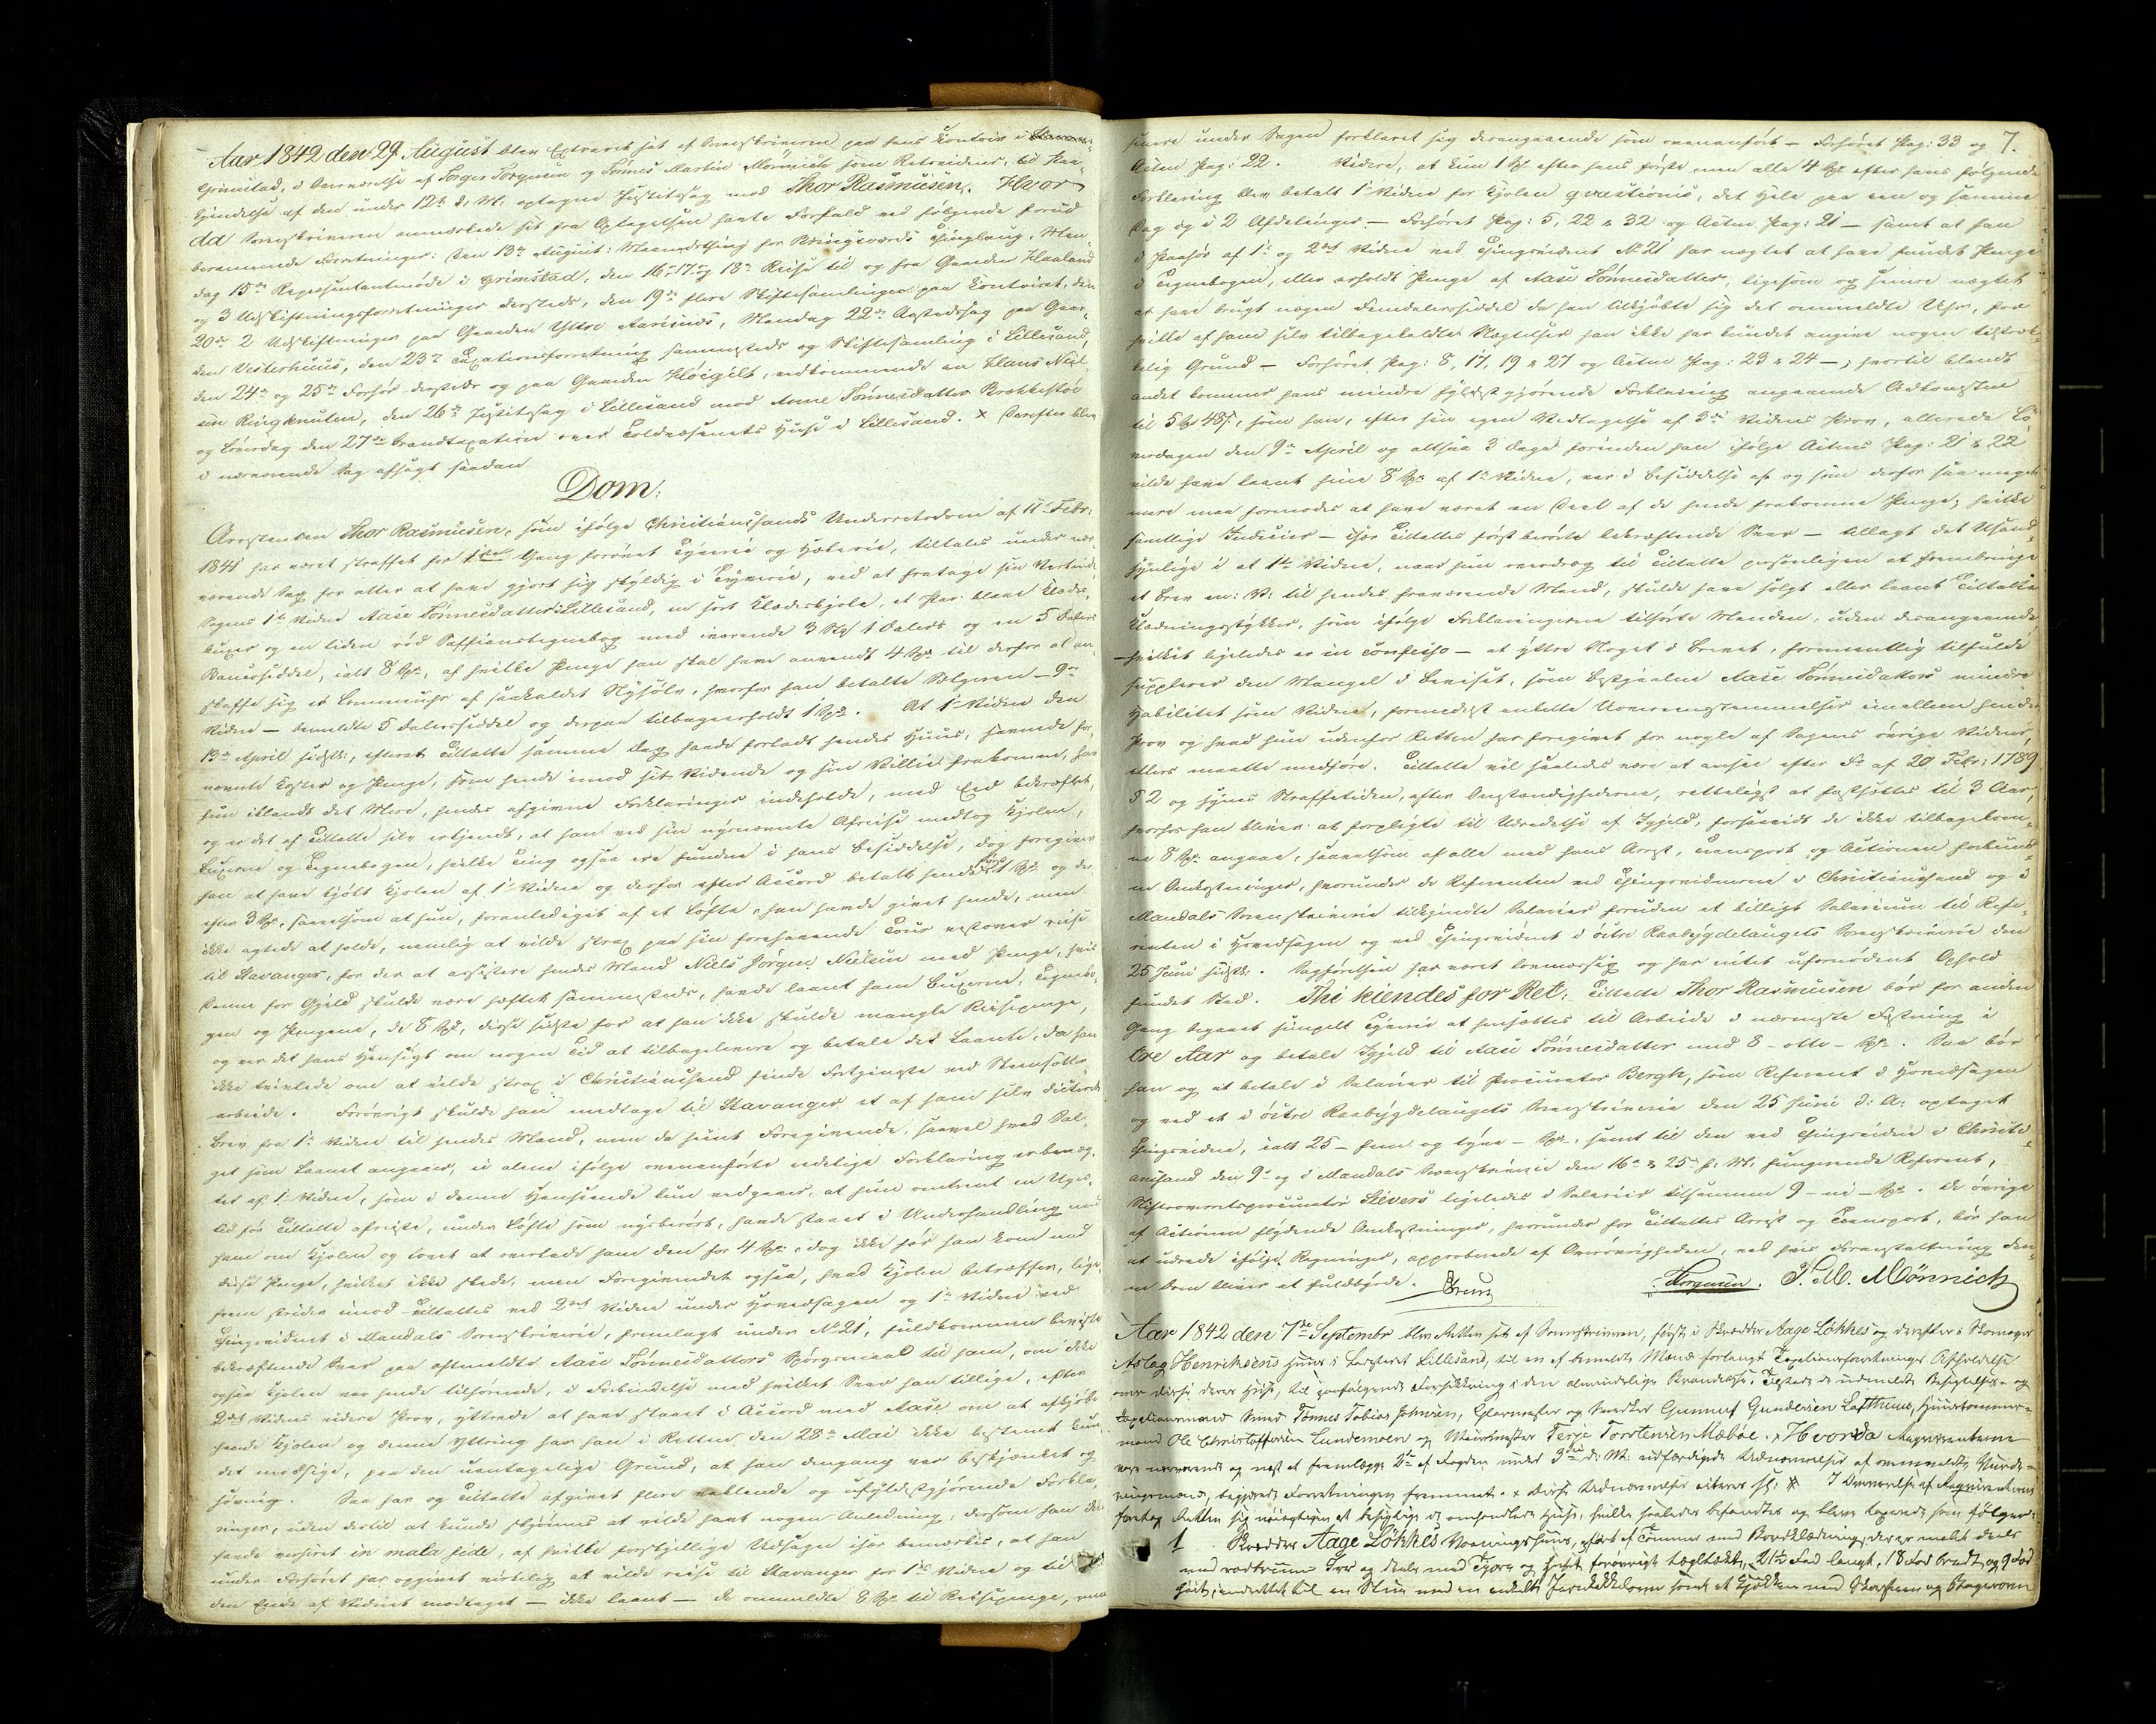 Aar 1842 den 29 August blev Extraret sat af Sorenskriveren paa hans Contoir i
Grimstad, i Overværelse af Torger Torgersen og Tønnes Martin Mønnich som Retsvidner, til Paa-
kjendelse af den under 12te d: M: optagne Justitssag mod Thor Rasmusen. Hvor-
da Sorenskriveren anmærkede sit fra Optagelsen havte Forfald ved følgende forud
berammede Forretninger: Den 13de August: Maanedsthing for Vestre Thinglaug, Man-
dag 15de Repræsentantmøde i Grimstad, den 16de 17de og 18de Reise til og fra Gaarden Haaland
og 3 Udskiftningsforretninger dersteds, den 19de flere Skiftesamlinger paa Contoiret, den
20de 2 Udskiftninger paa Gaarden Yttre Aarsnæs, Mandag 22de Aastedssag paa Gaar-
den Vesterhuus, den 23de Taxationsforretning sammesteds og Skiftesamling i Lillesand,
den 24de og 25de Forhør dersteds og paa Gaarden Høigilt, vedkommende en Claus Niel-
sen Ringknuten, den 26de Justitssag i Lillesand mod Anne Tønnesdatter Brækkestøe
og Løverdag den 27de Brandtaxation over Toldvæsenets Huse i Lillesand. x Derefter blev
i nærværende Sag afsagt saadan
Dom:
Arrestanten Thor Rasmusen, som ifølge Christianssands Underretsdom af 11te Febr:
1841 har været straffet for 1ste Gang forøvet Tyverie og Hæleri, tiltales under nær-
værende Sag for atter at have gjort sig skyldig i Tyverie, ved at fratage sin Vertinde
Sagens 1te Vidne Aase Tønnesdatter i Lillesand, en sort Klædeskjole, et Par blaae Klædes-
buxer og en liden rød Saffianstegnebog med iværende 3 Stk 1 Dalers og en 5 Dalers
Bancosedler, ialt 8 Spd, af hvilke Penge han skal have anvendt 4 Spd til derfor at an-
skaffe sig et Lommeuhr af saakaldet Nysølv, hvorfor han betalte Sælgeren – 9de
Vidne – bemeldte 5 Dalersseddel og derpaa tilbageerholdt 1 Spd. At 1te Vidne den
13de April sidstl:, efterat Tiltalte samme Dag havde forladt hendes Huus, savnede for-
nævnte Koster og Penge, som hende imod sit Vidende og sin Villie frakommen, har
hun iblandt det Mere, hendes afgivne Forklaringer indeholde, med Eed bekræftet,
og er det af Tiltalte selv erkjendt, at han ved sin nysnævnte Afreise medtog Kjolen,
Buxerne og Tegnebogen, hvilke Ting ogsaa ere fundne i hans Besiddelse, dog foregiver
han at have kjøbt Kjolen af 1te Vidne og derfor efter Accord betalt hende først 1 Spd og der-
efter 3 Spd, saavelsom at hun, foranlediget af et Løfte, han havde givet hende, men
ikke agtede at holde, nemlig at vilde strax paa sin forehavende Tour vestover reise
til Stavanger, for der at assistere hendes Mand Niels Jørgen Nielsen med Penge, hvis
Denne for Gjeld skulde være hæftet sammesteds, havde laant ham Buxerne, Tegnebo-
gen og Pengene, de 8 Spd, disse sidste for at han ikke skulde mangle Reisepenge,
og var det hans Hensigt om nogen Tid at tilbagelevere og betale det Laante, da han
ikke tvivlede om at vilde strax i Christianssand finde Fortjeneste ved Steensætter-
arbeide. Forøvrigt skulde han medtage til Stavanger et af ham selv dicteret
Brev fra 1te Vidne til hendes Mand, men da hiint Foregivende, saavel hvad Sal-
get som Laanet angaaer, ei alene ifølge ovenanførte eedelige Forklaring er benæg-
tet af 1te Vidne, som i denne Henseende kun vedgaaer, at hun omtrent en Uges-
tid før Tiltalte afreiste, under Løfte som nysberørt, havde staaet i Underhandling med
ham om Kjolen og lovet at overlade ham den for 4 Spd, dog ikke før han kom med
disse Penge, hvilket ikke skede, men Foregivendet ogsaa, hvad Kjolen betræffer, lige-
frem strider imod Tiltaltes ved 2det Vidne under Hovedsagen og 1te Vidne ved
Thingsvidnet i Mandals Sorenskriverie, fremlagt under No 21, fuldkommen beviste
bekræftende Svar paa oftmeldte Aase Tønnesdatters Spørgsmaal til ham, om ikke
ogsaa Kjolen var hende tilhørende, i Forbindelse med hvilket Svar han tillige, efter
2det Vidnes videre Prov, yttrede at have staaet i Accord med Aase om at afkjøbe
hende Kjolen og denne Yttring har han i Retten den 28de Mai ikke bestemt kun-
det modsige, paa den uantagelige Grund, at han dengang var beskjænket og
søvnig. Saa har og Tiltalte afgivet flere vaklende og ufyldestgjørende Forkla-
ringer, uden dertil at kunde skjønnes at vilde havt nogen Anledning, dersom han ikke
havde verseret in mala fide, af hvilke forskjellige Udsagn især bemærkes, at han
under Forhøret har opgivet virkelig at vilde reise til Stavanger for 1te Vidne og til
den Ende af Vidnet modtaget – ikke laant – de ommeldte 8 Spd til Reisepenge, men
7.
senere under Sagen forklaret sig derangaaende som ovenanført – Forhøret Pag: 33 og
Acten Pag: 22. Videre, at kun 1 Spd efter hans første men alle 4 Spd efter hans følgende
Forklaring blev betalt 1te Vidne for Kjolen qvæstionis, det Hele paa een og samme
Dag og i 2 Afdelinger – Forhøret Pag: 5, 22 & 32 og Acten Pag: 21 – samt at han
i Paahør af 1te og 2det Vidne ved Thingsvidnet No 21 har nægtet at have fundet Penge
i Tegnebogen, eller erholdt Penge af Aase Tønnesdatter, ligesom og senere nægtet
at have brugt nogen Femdalersseddel da han tilkjøbte sig det ommeldte Uhr, for
hvilke af ham selv tilbagekaldte Nægtelser han ikke har kundet angive nogen tilstræk-
kelig Grund – Forhøret Pag: 8, 17, 19 & 27 og Acten Pag: 23 & 24 –; hvortil blandt
andet kommer hans mindre fyldestgjørende Forklaring angaaende Adkomsten
til 5 Spd 48 s, som han, efter sin egen Vedtagelse af 3die Vidnes Prov, allerede Lø-
verdagen den 9de April og altsaa 3 Dage forinden han ifølge Actens Pag: 21 & 22
vilde have laant hine 8 Spd af 1te Vidne, var i Besiddelse af og som derfor saa meget
mere maa formodes at have været en Deel af de hende frakomne Penge; hvilke
samtlige Indicier – især Tiltaltes først berørte bekræftende Svar – tillagt det Usand-
synlige i at 1te Vidne, naar hun overdrog til Tiltalte personligen at frembringe
et Brev m: V: til hendes fraværende Mand, skulde have solgt eller laant Tiltalte
Klædningsstykker, som ifølge Forklaringerne tilhørte Manden, uden derangaaende
– hvilket ligeledes er in confesso – at yttre Noget i Brevet, formeentlig tilfulde
supplerer den Mangel i Beviset, som Bestjaalne Aase Tønnesdatters mindre
Habilitet som Vidne, formedelst enkelte Uoverensstemmelser imellem hendes
Prov og hvad hun udenfor Retten har foregivet for nogle af Sagens øvrige Vidner,
ellers maatte medføre. Tiltalte vil saaledes være at ansee efter Fr af 20 Febr: 1789
§ 2 og synes Straffetiden, efter Omstændighederne, retteligst at fastsættes til 3 Aar,
hvorhos han bliver at forpligte til Udredelse af Igjeld, forsaavidt de ikke tilbagekom-
ne 8 Spd angaae, saavelsom af alle med hans Arrest, Transport og Actionen forbund-
ne Omkostninger, hvorunder de Referenten ved Thingsvidnerne i Christianssand og i
Mandals Sorenskriverie tilkjendte Salarier foruden et billigt Salarium til Refe-
renten i Hovedsagen og ved Thingsvidnet i østre Raabygdelaugets Sorenskriverie den
25 Juni sidstl:. Sagførelsen har været lovmæssig og har intet ufornødent Ophold
fundet Sted. Thi kiendes for Ret: Tiltalte Thor Rasmusen bør for anden
Gang begaaet simpelt Tyverie at hensættes til Arbeide i nærmeste Fæstning i
tre Aar og betale Igjeld til Aase Tønnesdatter med 8 – otte – Spd. Saa bør
han og at betale i Salarier til Procurator Bergh, som Referent i Hovedsagen
og ved et i østre Raabygdelaugets Sorenskriverie den 25 Juni d: A: optaget
Thingsvidne, ialt 25 – fem og tyve – Spd, samt til den ved Thingsvidne i Christi-
anssand den 9de og i Mandals Sorenskriverie den 16de & 25de f: M: fungerende Referent,
Stiftsoverretsprocurator Sievers ligeledes i Salarier tilsammen 9 – ni – Spd. De øvrige
af Actionen flydende Omkostninger, hvorunder for Tiltaltes Arrest og Transport, bør han
at udrede ifølge Regninger, approberede af Overøvrigheden, ved hvis Foranstaltning den-
ne Dom bliver at fuldbyrde. Torgersen. T. M. Mønnich
Aar 1842 den 7de Septembr blev Retten sat af Sorenskriveren, først i Skrædder Aage Løkkes og derefter i Skomager
Aslag Henriksens Huus i Ladestedet Lillesand, til en af bemeldte Mænd forlangt Taxationsforretnings Afholdelse
over disse deres Huse, til paafølgende Forsikkring i den almindelige Brandkasse; Tilstede de udmeldte Besigtelses- og
Taxationsmænd Smed Tønnes Tobias Johnsen, Glarmester og Snedker Gunnuf Gundersen Lofthuus, Huustømmer-
mand Ole Christoffersen Lundemoen og Muurmester Terje Torstensen Mæbøe. x Hvorda Reqvirenterne
vare nærværende og næst at fremlægge 2de af Fogden under 3die d: M: udfærdigede Udnævnelser af ommeldte Vurde-
ringsmænd, begjærede Forretningen fremmet. x Disse Udnævnelser citeres sl: # I Overværelse af Reqvirenterne
foretog Retten sig nøiagtigen at besigtige de omhandlede Huse, hvilke saaledes befandtes og bleve taxerede som følger:
1. Skrædder Aage Løkkes Vaaningshuus, opført af Tømmer med Bordklædning, der er malet deels
med rødbruun Farve og deels med Tjære og Huset forøvrigt tægltækt, 21½ Fod langt, 18 Fod bredt og 9 Fod
høit, indrettet til en Stue med en enkelt Jernkakkelovn samt et Kjøkken med Skorsteen og Bagerovn